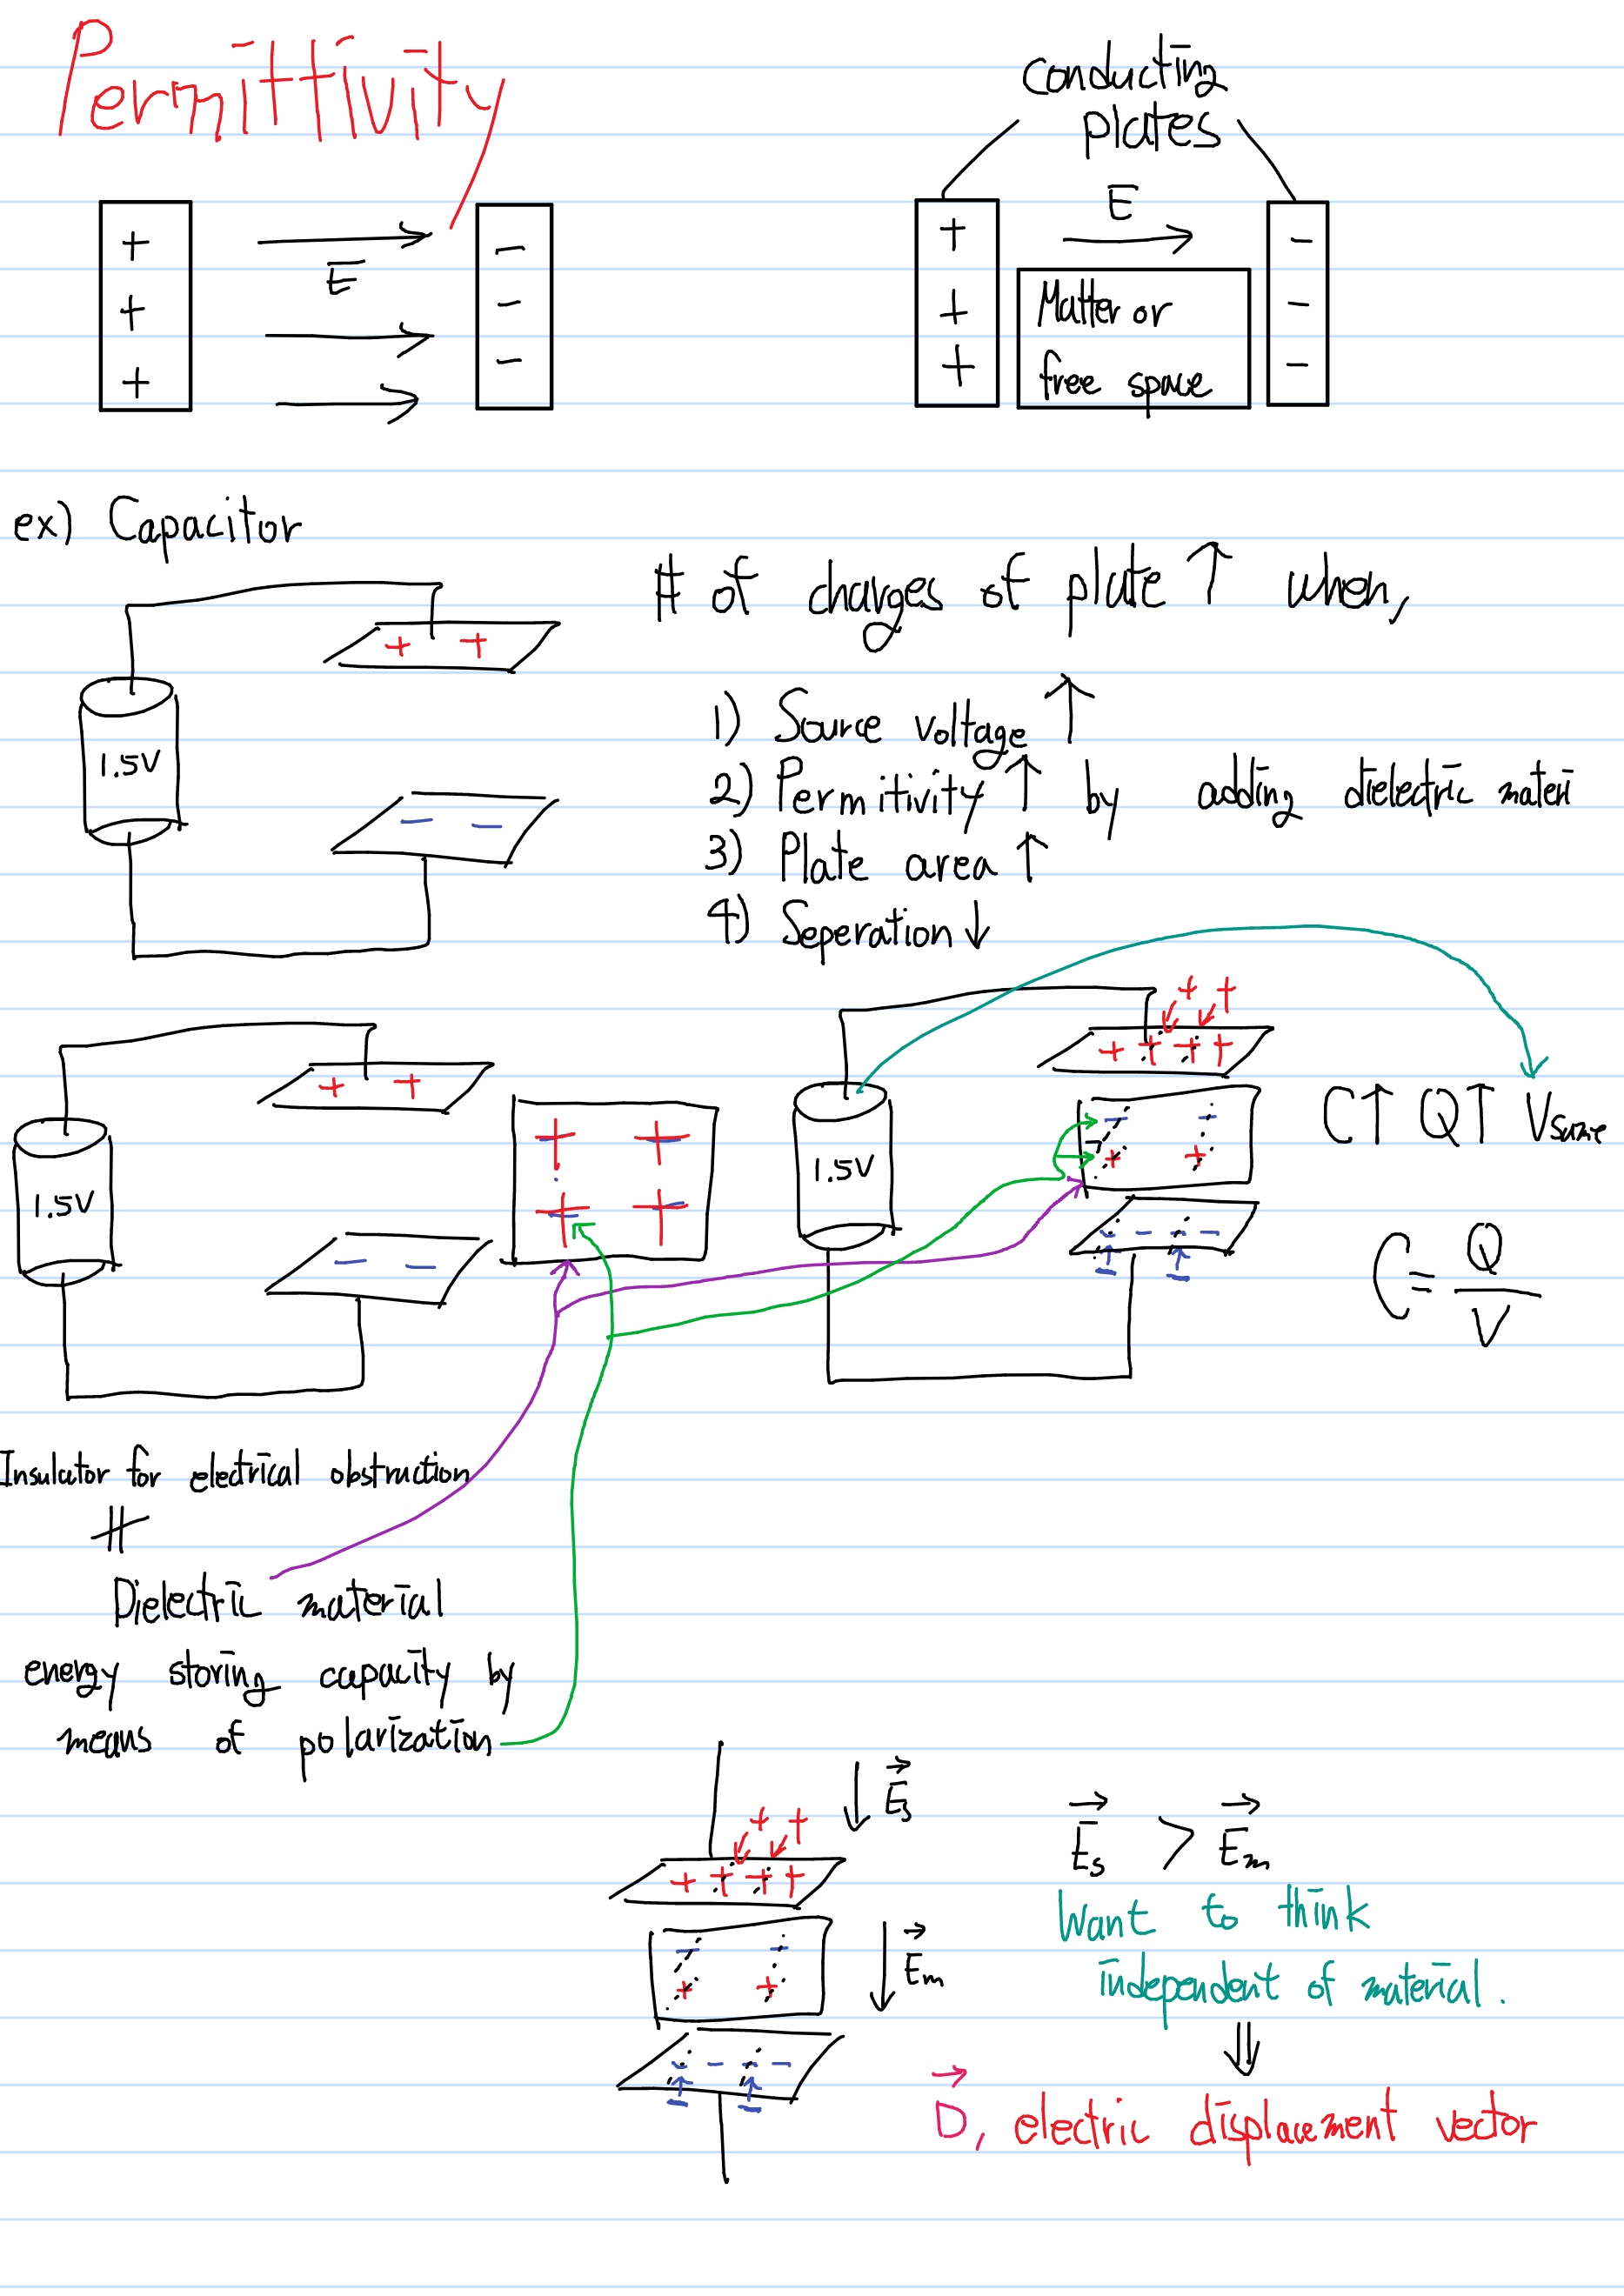 Permittivity
conducting
plates
+ + +
E
- - -
+ + +
E
Matter or
free space
- - -
ex) Capacitor
# of charges of plate ↑ when,
1) Source voltage ↑
2) Permitivity ↑ by adding dielectric materi
3) Plate area ↑
4) Seperation ↓
+ +
1.5V
- -
+ +
1.5V
- -
+ +
+ + + +
1.5V
C↑ Q↑ Vsame
C = Q/V
Insulator for electrical obstruction
≠
Dielectric material
energy storing capacity by
means of polarization
Es
Em
Es > Em
Want to think
independent of material.
⇓
D, electric displacement vector